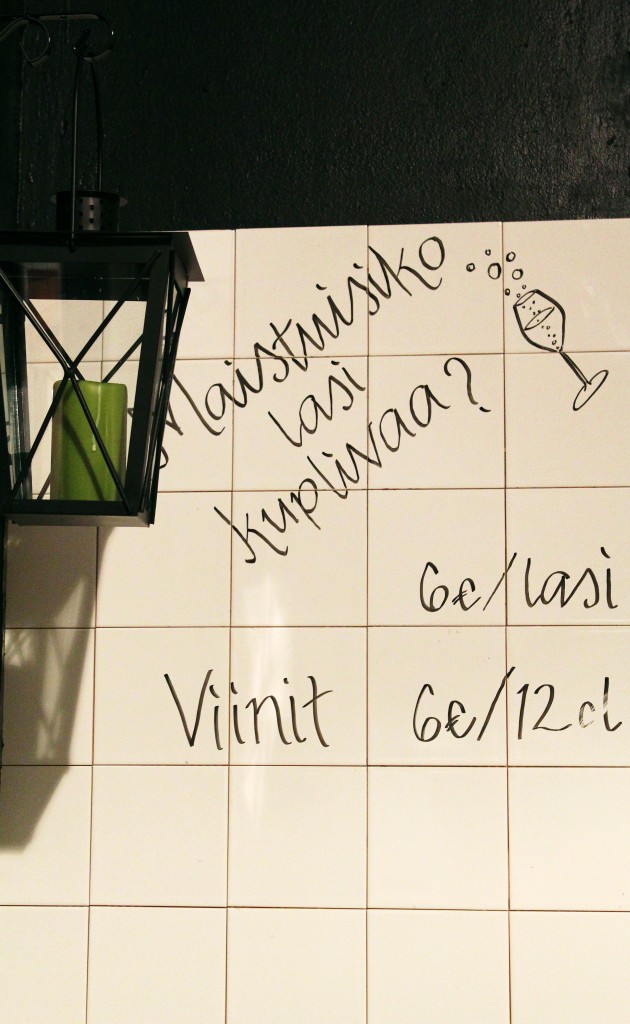 Maistuisiko
lasi
kuplivaa?
6€/lasi
Viinit 6€/12 cl